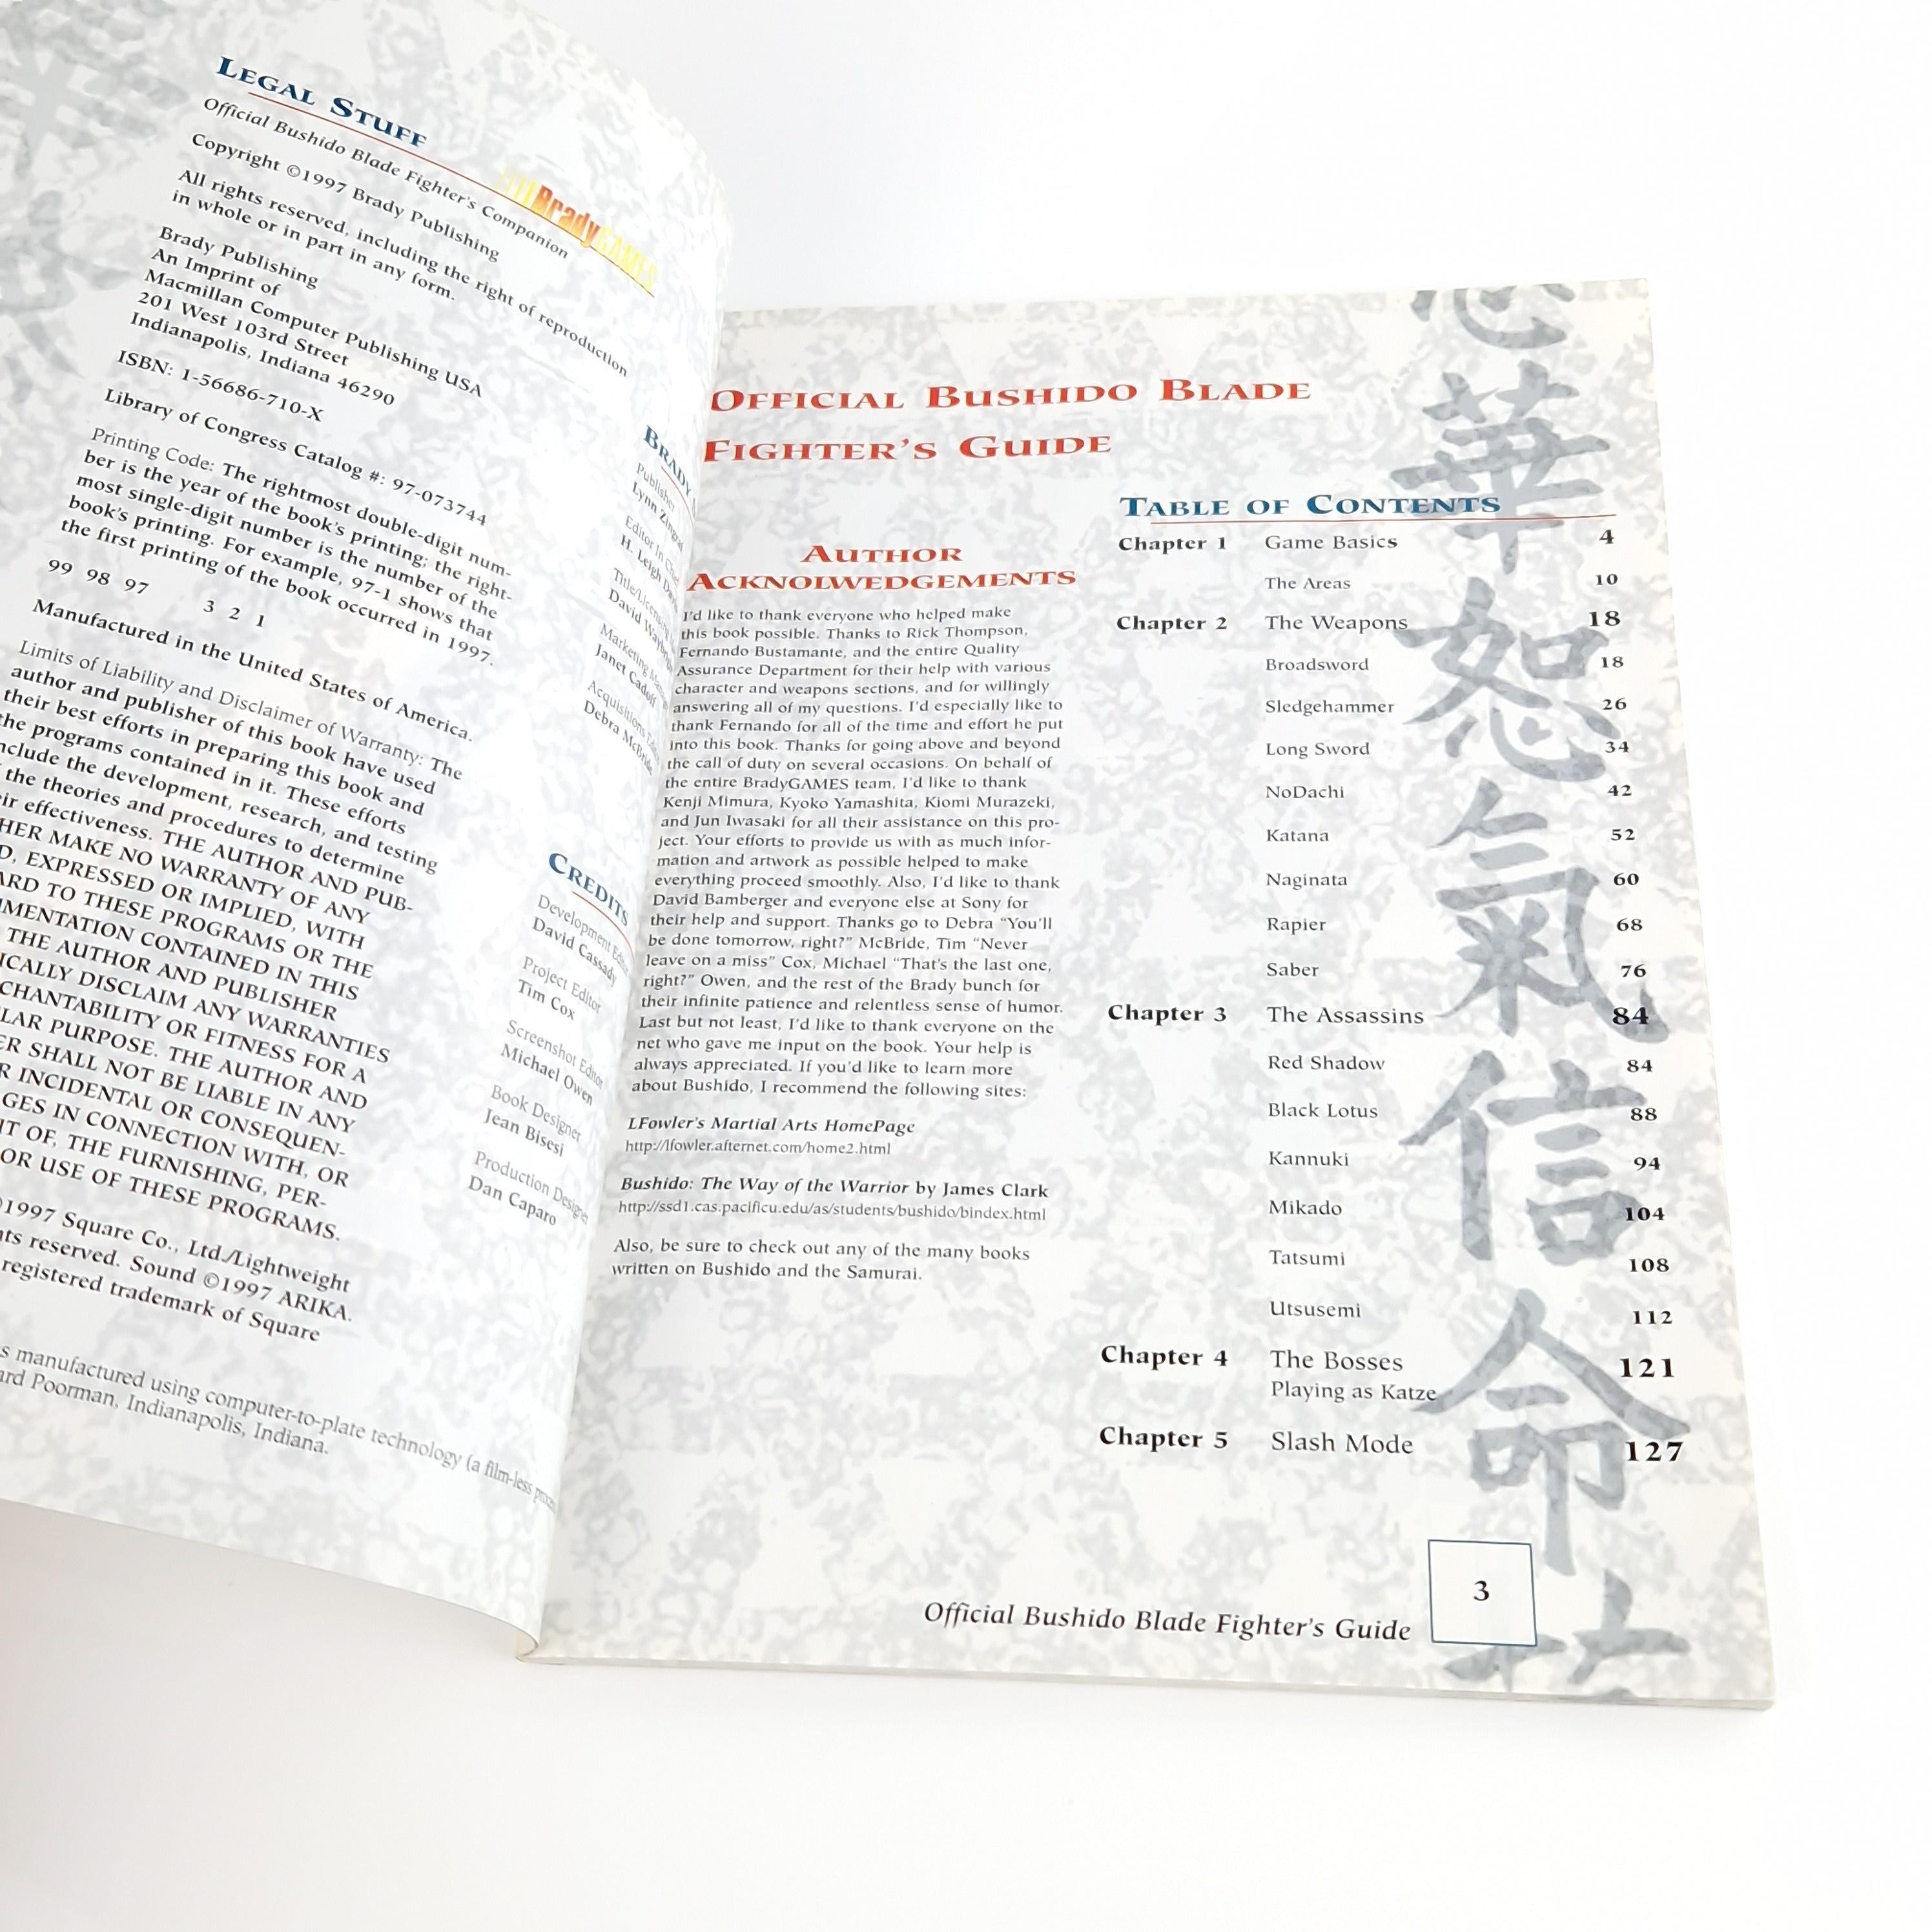 LEGAL STUFF
Official Bushido Blade Fighter's Companion
BradyGAMES
Copyright ©1997 Brady Publishing
All rights reserved, including the right of reproduction
in whole or in part in any form.
Brady Publishing
An Imprint of
Macmillan Computer Publishing USA
201 West 103rd Street
Indianapolis, Indiana 46290
ISBN: 1-56686-710-X
Library of Congress Catalog #: 97-073744
Printing Code: The rightmost double-digit num-
ber is the year of the book's printing; the right-
most single-digit number is the number of the
book's printing. For example, 97-1 shows that
the first printing of the book occurred in 1997.
99 98 97 3 2 1
Manufactured in the United States of America.
Limits of Liability and Disclaimer of Warranty: The
author and publisher of this book have used
their best efforts in preparing this book and
the programs contained in it. These efforts
include the development, research, and testing
the theories and procedures to determine
effectiveness. THE AUTHOR AND PUB-
MAKE NO WARRANTY OF ANY
EXPRESSED OR IMPLIED, WITH
TO THESE PROGRAMS OR THE
CONTAINED IN THIS
THE AUTHOR AND PUBLISHER
DISCLAIM ANY WARRANTIES
OR FITNESS FOR A
PURPOSE. THE AUTHOR AND
SHALL NOT BE LIABLE IN ANY
INCIDENTAL OR CONSEQUEN-
IN CONNECTION WITH, OR
OF, THE FURNISHING, PER-
OR USE OF THESE PROGRAMS.
©1997 Square Co., Ltd./Lightweight
reserved. Sound ©1997 ARIKA.
registered trademark of Square
manufactured using computer-to-plate technology (a film-less
Poorman, Indianapolis, Indiana.
BRADY
Publisher
Lynn
Editor In Chief
H. Leigh
David
Marketing
Janet
Acquisitions
Debra McBride
CREDITS
Development Editor
David Cassady
Project Editor
Tim Cox
Screenshot Editor
Michael Owen
Book Designer
Jean Bisesi
Production Designer
Dan Caparo
OFFICIAL BUSHIDO BLADE
FIGHTER'S GUIDE
AUTHOR
ACKNOLWEDGEMENTS
I'd like to thank everyone who helped make
this book possible. Thanks to Rick Thompson,
Fernando Bustamante, and the entire Quality
Assurance Department for their help with various
character and weapons sections, and for willingly
answering all of my questions. I'd especially like to
thank Fernando for all of the time and effort he put
into this book. Thanks for going above and beyond
the call of duty on several occasions. On behalf of
the entire BradyGAMES team, I'd like to thank
Kenji Mimura, Kyoko Yamashita, Kiomi Murazeki,
and Jun Iwasaki for all their assistance on this pro-
ject. Your efforts to provide us with as much infor-
mation and artwork as possible helped to make
everything proceed smoothly. Also, I'd like to thank
David Bamberger and everyone else at Sony for
their help and support. Thanks go to Debra "You'll
be done tomorrow, right?" McBride, Tim "Never
leave on a miss" Cox, Michael "That's the last one,
right?" Owen, and the rest of the Brady bunch for
their infinite patience and relentless sense of humor.
Last but not least, I'd like to thank everyone on the
net who gave me input on the book. Your help is
always appreciated. If you'd like to learn more
about Bushido, I recommend the following sites:
LFowler's Martial Arts HomePage
http://lfowler.afternet.com/home2.html
Bushido: The Way of the Warrior by James Clark
http://ssd1.cas.pacificu.edu/as/students/bushido/bindex.html
Also, be sure to check out any of the many books
written on Bushido and the Samurai.
TABLE OF CONTENTS
Chapter 1 Game Basics 4
The Areas 10
Chapter 2 The Weapons 18
Broadsword 18
Sledgehammer 26
Long Sword 34
NoDachi 42
Katana 52
Naginata 60
Rapier 68
Saber 76
Chapter 3 The Assassins 84
Red Shadow 84
Black Lotus 88
Kannuki 94
Mikado 104
Tatsumi 108
Utsusemi 112
Chapter 4 The Bosses 121
Playing as Katze
Chapter 5 Slash Mode 127
華
恕
氣
信
命
Official Bushido Blade Fighter's Guide
3